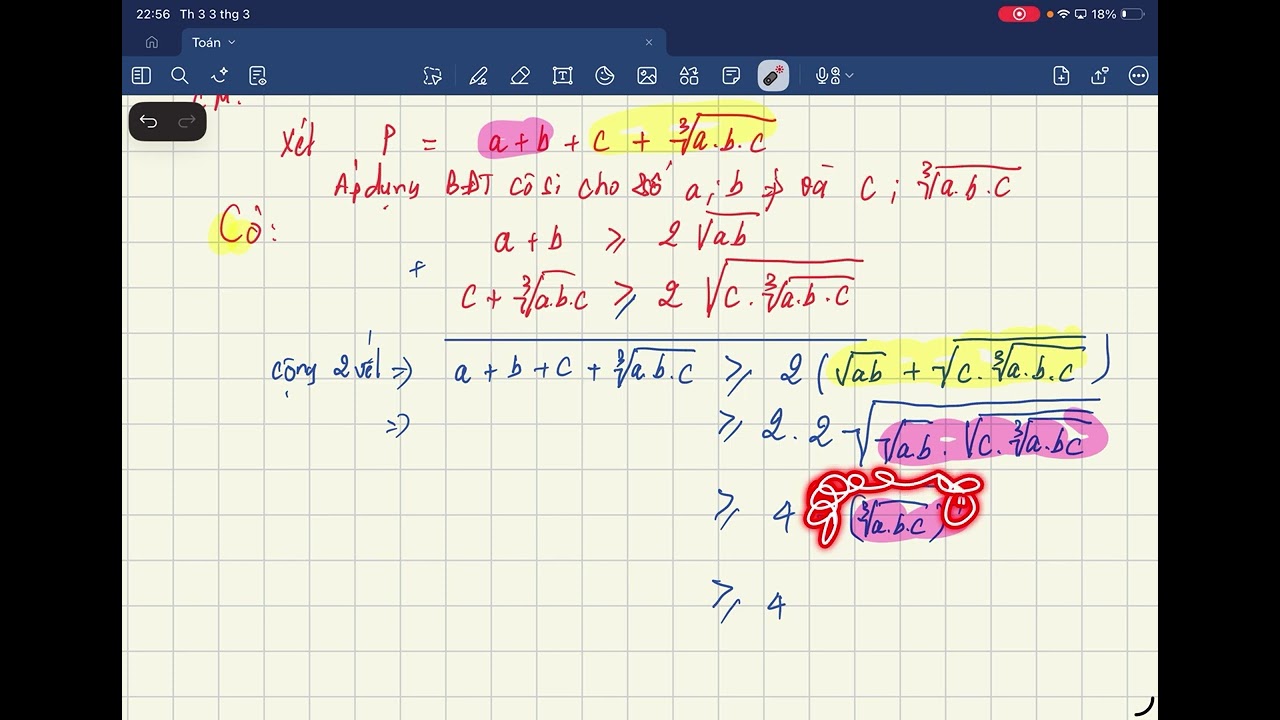 22:56 Th 3 3 thg 3 18%
Toán
Xét P = a + b + c + ∛a.b.c
Áp dụng BĐT cô si cho số a; b và c; ∛a.b.c
Có:
a + b ≥ 2√ab
+
c + ∛a.b.c ≥ 2√c.∛a.b.c
Cộng 2 vế => a + b + c + ∛a.b.c ≥ 2(√ab + √c.∛a.b.c)
=> ≥ 2.2√√a.b.√c.∛a.bc
≥ 4 (∛a.b.c)
≥ 4